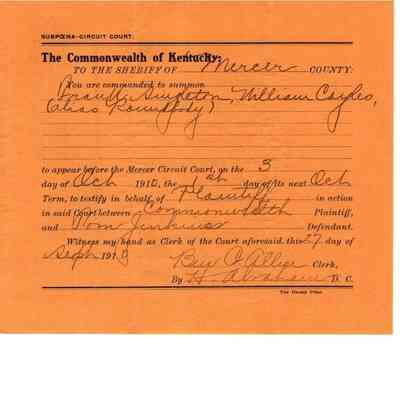 SUBPŒNA-CIRCUIT COURT.
The Commonwealth of Kentucky:
TO THE SHERIFF OF Mercer COUNTY:
You are commanded to summon
Singleton, William Cayles,
(alias
to appear before the Mercer Circuit Court, on the 3
day of Oct 1910, the 1st day of its next Oct
Term, to testify in behalf of Plaintiff in action
in said Court between Commonwealth Plaintiff,
and Tom Jenkins Defendant.
Witness my hand as Clerk of the Court aforesaid, this 27 day of
Sept 191
Ben C Allen Clerk,
By H. D. C.